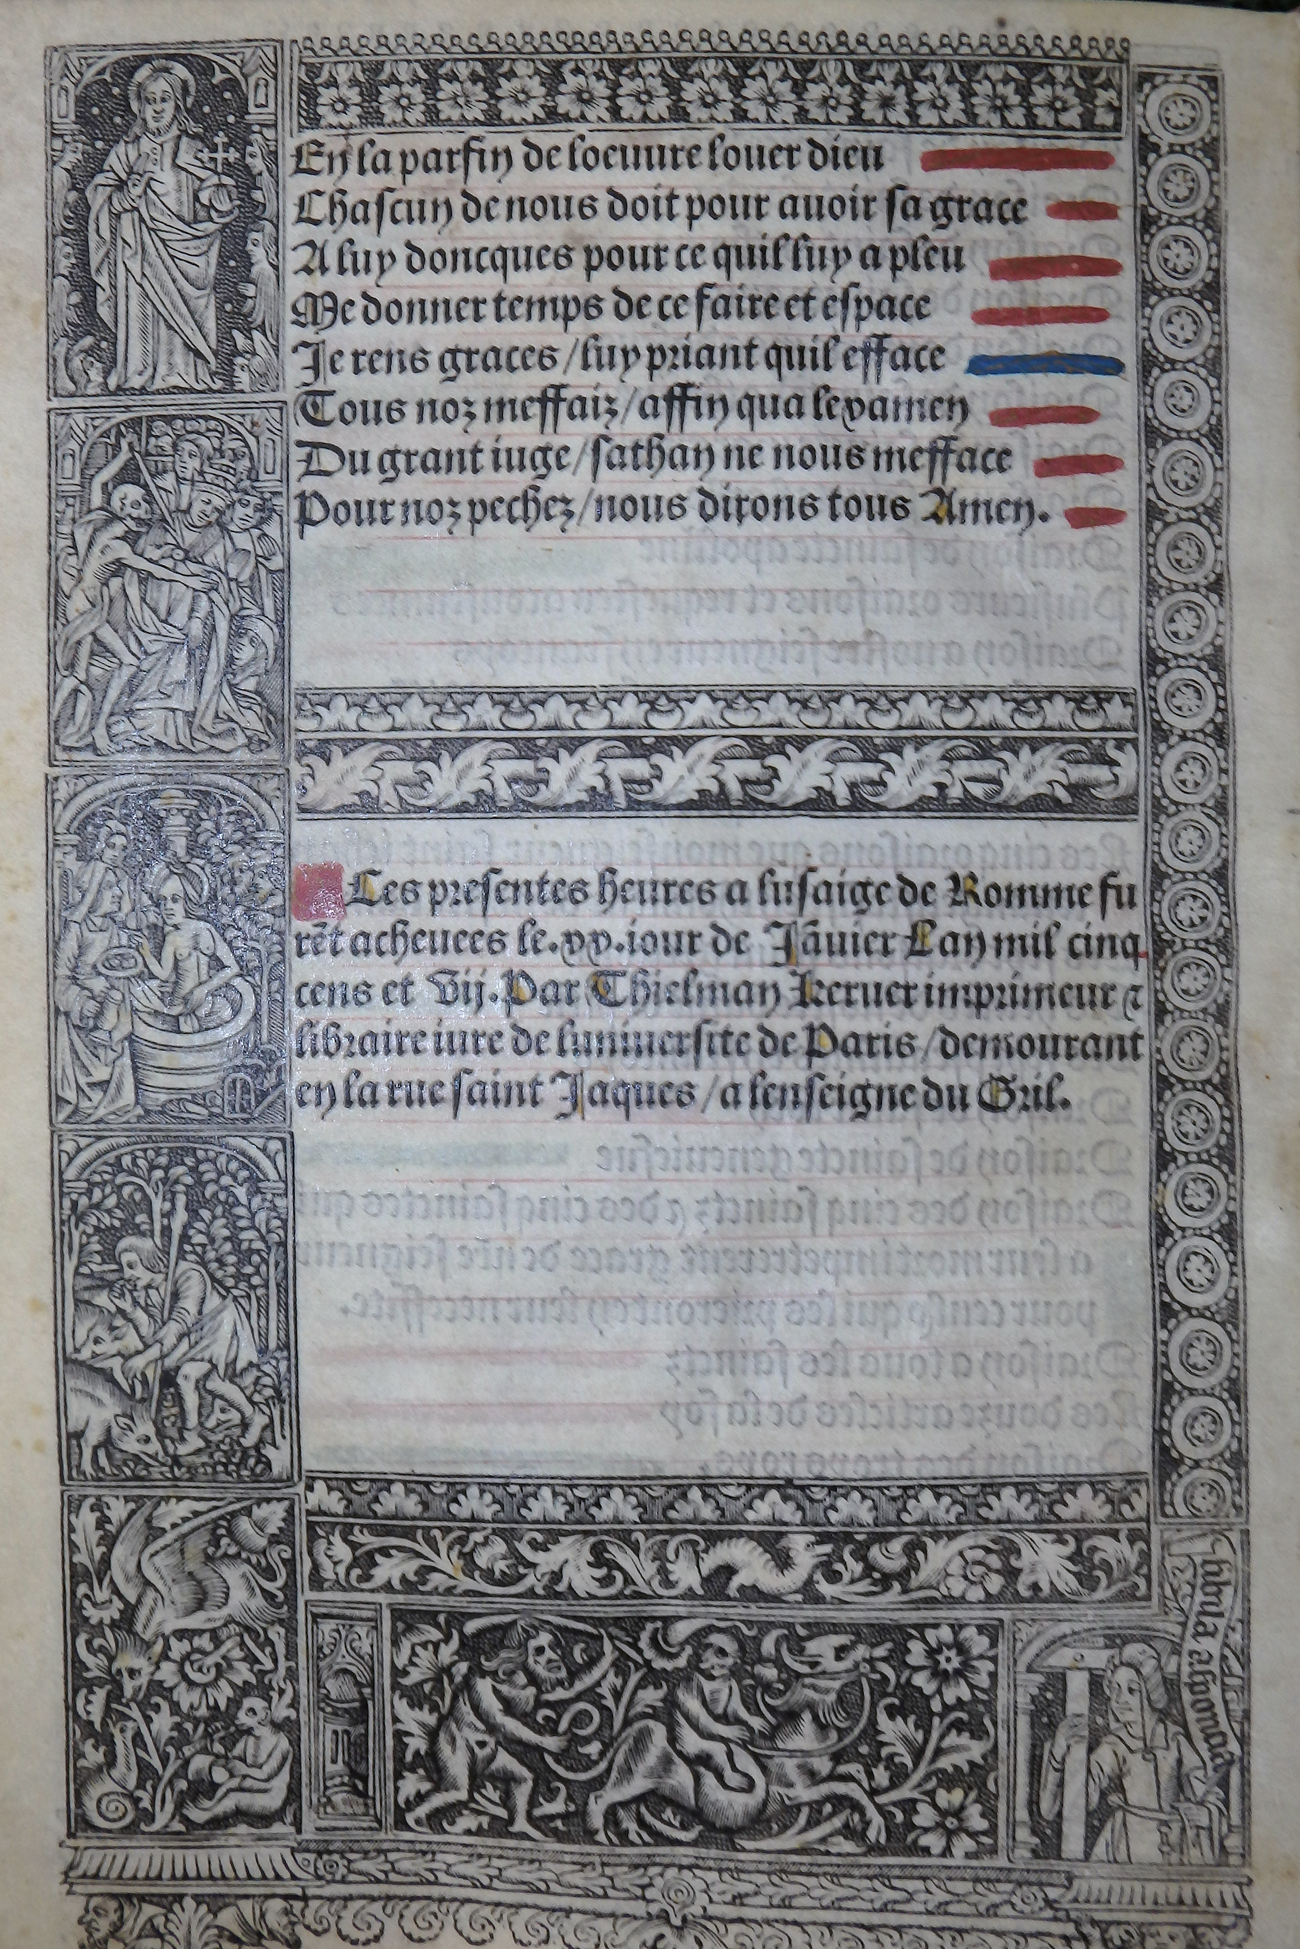 En la parfin de loeuure louer dieu
Chascun de nous doit pour auoir sa grace
A luy doncques pour ce quil luy a pleu
Me donner temps de ce faire et espace
Je rens graces / luy priant quil efface
Tous noz meffaiz / affin qua lexamen
Du grant iuge / sathan ne nous mefface
Pour noz pechez / nous dirons tous Amen.
Les presentes heures a lusaige de Romme fu
rēt acheuees le .xx. iour de Jāuier Lan mil cinq
cens et vij. Par Thielman Keruer imprimeur ⁊
libraire iure de luniuersite de Paris / demourant
en la rue saint Jaques / a lenseigne du Gril.
M